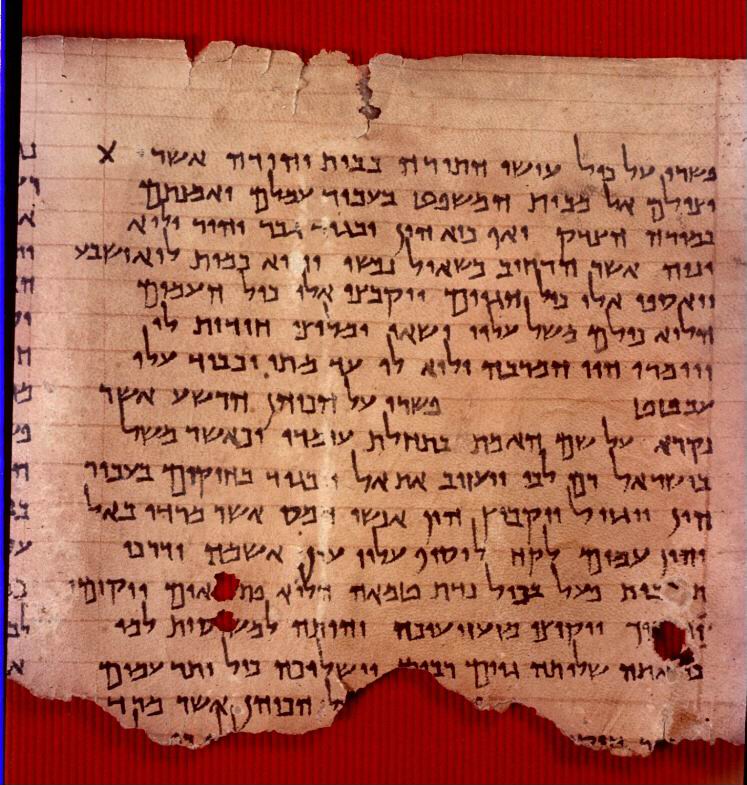 פשרו על כול עושי התורה בבית יהודה אשר X
יצילם אל מבית המשפט בעבור עמלם ואמנתם
במורה הצדק ואף כיא הון יבגוד גבר יהיר ולוא
ינוה אשר הרחיב כשאול נפשו והוא כמות לוא ישבע
ויאספו אלו כול הגוים ויקבצו אלו כול העמים
הלוא כולם משל עליו ישאו ומליצי חידות לו
ויומרו הוי המרבה ולוא לו עד מתי יכביד עלו
עבטט פשרו על הכוהן הרשע אשר
נקרא על שם האמת בתחלת עומדו וכאשר משל
בישראל רם לבו ויעזוב את אל ויבגוד בחוקים בעבור
הון ויגזול ויקבוץ הון אנשי חמס אשר מרדו באל
והון עמים לקח לוסיף עליו עון אשמה ודרכי
פעל בכול נדת טמאה הלוא ויקומו
ויקיצו מזעזיעיכה והייתה למו
אתה שלותה גוים רבים וישלוכה כול יתר עמים
הכוהן אשר מרד